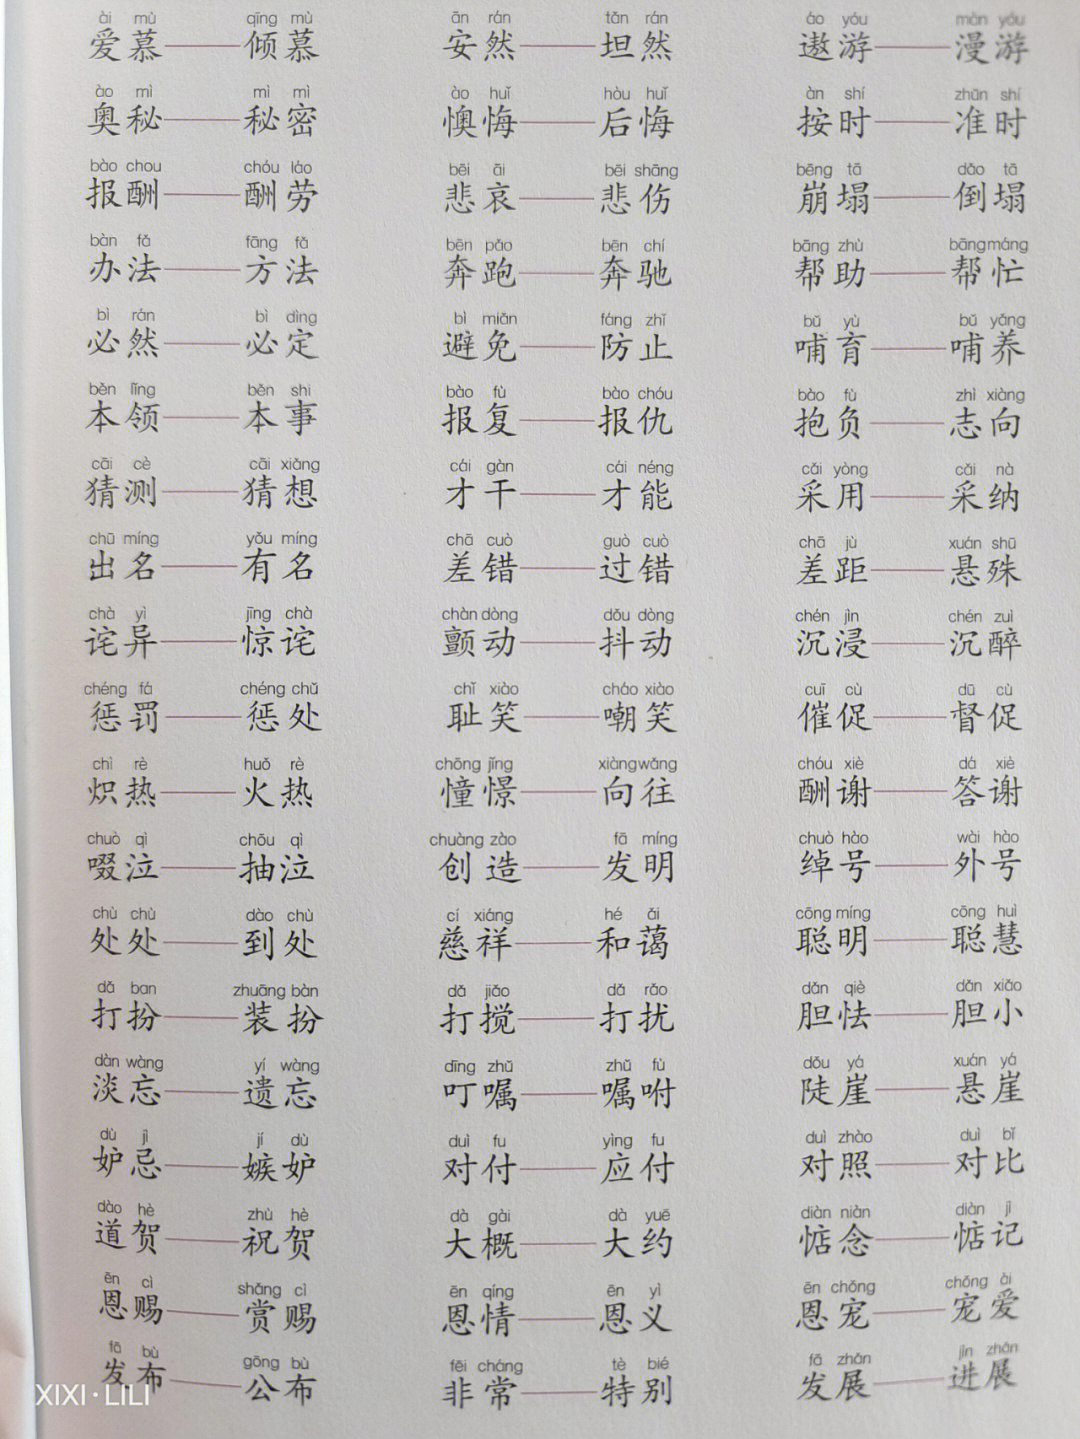 ài mù qīng mù ān rán tǎn rán áo yóu màn yóu
爱慕——倾慕 安然——坦然 遨游——漫游
ào mì mì mì ào huǐ hòu huǐ àn shí zhǔn shí
奥秘——秘密 懊悔——后悔 按时——准时
bào chou chóu láo bēi āi bēi shāng bēng tā dǎo tā
报酬——酬劳 悲哀——悲伤 崩塌——倒塌
bàn fǎ fāng fǎ bēn pǎo bēn chí bāng zhù bāng máng
办法——方法 奔跑——奔驰 帮助——帮忙
bì rán bì dìng bì miǎn fáng zhǐ bǔ yù bǔ yǎng
必然——必定 避免——防止 哺育——哺养
běn lǐng běn shi bào fù bào chóu bào fù zhì xiàng
本领——本事 报复——报仇 抱负——志向
cāi cè cāi xiǎng cái gàn cái néng cǎi yòng cǎi nà
猜测——猜想 才干——才能 采用——采纳
chū míng yǒu míng chā cuò guò cuò chā jù xuán shū
出名——有名 差错——过错 差距——悬殊
chà yì jīng chà chàn dòng dǒu dòng chén jìn chén zuì
诧异——惊诧 颤动——抖动 沉浸——沉醉
chéng fá chéng chǔ chǐ xiào cháo xiào cuī cù dū cù
惩罚——惩处 耻笑——嘲笑 催促——督促
chì rè huǒ rè chōng jǐng xiàng wǎng chóu xiè dá xiè
炽热——火热 憧憬——向往 酬谢——答谢
chuò qì chōu qì chuàng zào fā míng chuò hào wài hào
啜泣——抽泣 创造——发明 绰号——外号
chù chù dào chù cí xiáng hé ǎi cōng míng cōng huì
处处——到处 慈祥——和蔼 聪明——聪慧
dǎ ban zhuāng bàn dǎ jiǎo dǎ rǎo dǎn qiè dǎn xiǎo
打扮——装扮 打搅——打扰 胆怯——胆小
dàn wàng yí wàng dīng zhǔ zhǔ fù dǒu yá xuán yá
淡忘——遗忘 叮嘱——嘱咐 陡崖——悬崖
dù jì jí dù duì fu yìng fu duì zhào duì bǐ
妒忌——嫉妒 对付——应付 对照——对比
dào hè zhù hè dà gài dà yuē diàn niàn diàn jì
道贺——祝贺 大概——大约 惦念——惦记
ēn cì shǎng cì ēn qíng ēn yì ēn chǒng chǒng ài
恩赐——赏赐 恩情——恩义 恩宠——宠爱
fā bù gōng bù fēi cháng tè bié fā zhǎn jìn zhǎn
发布——公布 非常——特别 发展——进展
XIXI·LILI